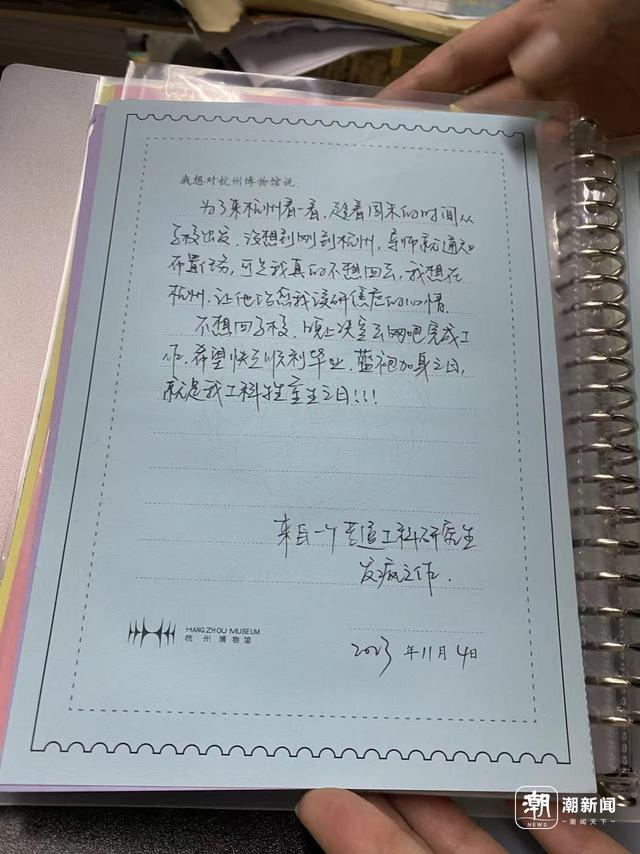 我想对杭州博物馆说:
为了来杭州看一看,趁着周末的时间从
学校出发,没想到刚到杭州,导师就通知
布置任务,可是我真的不想回去,我想在
杭州,让他治愈我读研焦虑的心情.
不想回学校,晚上决定去网吧完成工
作,希望快点顺利毕业,蓝袍加身之日,
就是我工科牲重生之日!!!
来自一个普通工科研究生
发疯之作.
HANGZHOU MUSEUM
杭州博物馆
2023年11月4日
潮 NEWS 潮新闻
潮闻天下